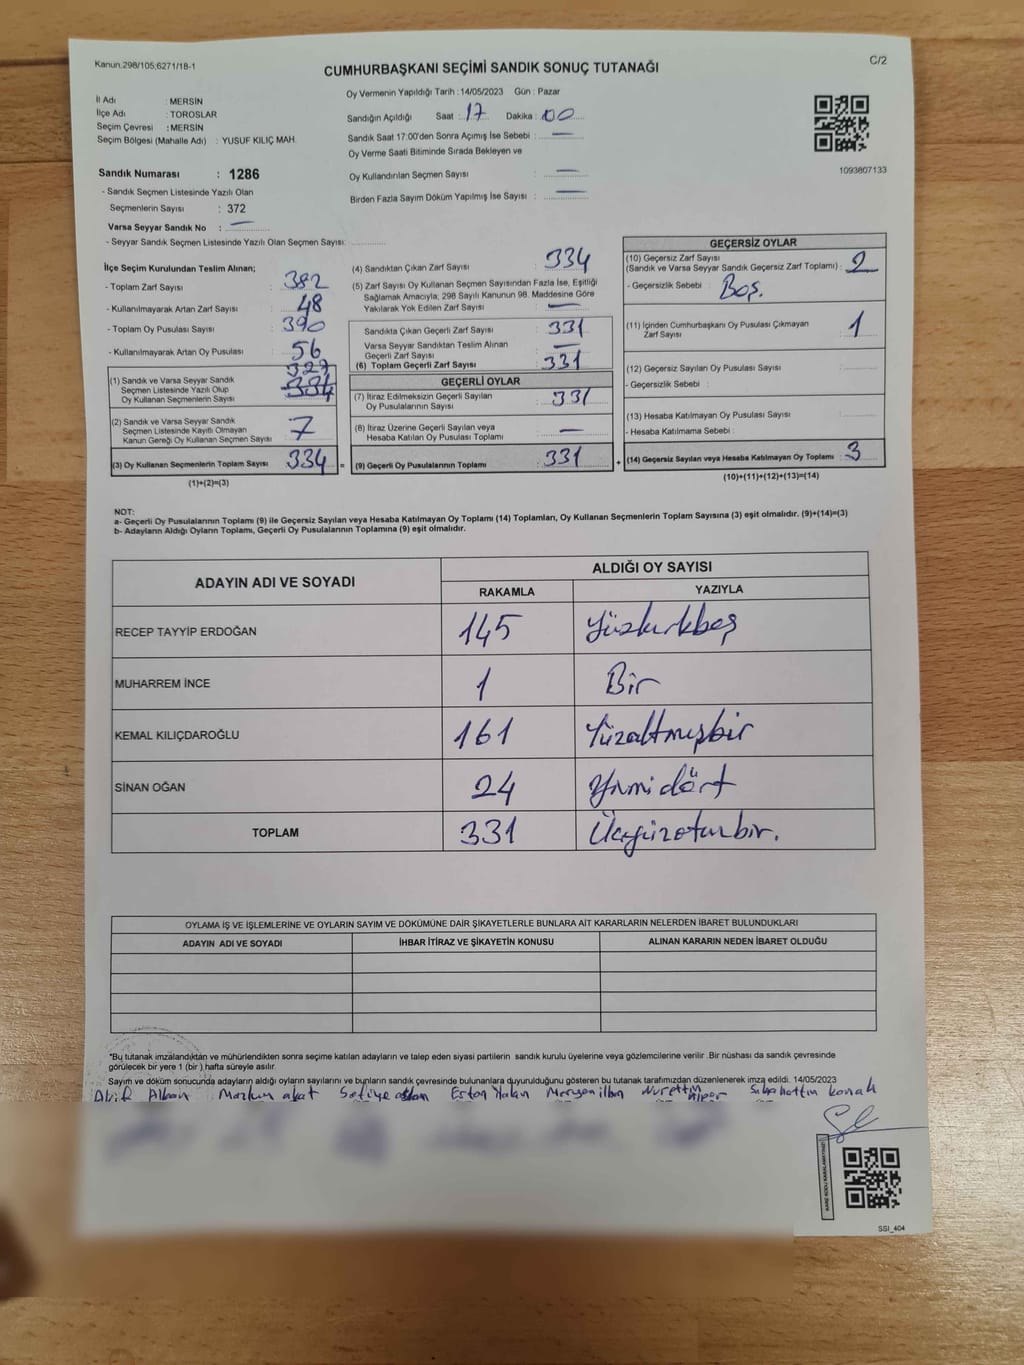 Kanun.298/105;6271/18-1
C/2
CUMHURBAŞKANI SEÇİMİ SANDIK SONUÇ TUTANAĞI
İl Adı : MERSİN
İlçe Adı : TOROSLAR
Seçim Çevresi : MERSİN
Seçim Bölgesi (Mahalle Adı) : YUSUF KILIÇ MAH.
Sandık Numarası : 1286
- Sandık Seçmen Listesinde Yazılı Olan
Seçmenlerin Sayısı : 372
Varsa Seyyar Sandık No : —
- Seyyar Sandık Seçmen Listesinde Yazılı Olan Seçmen Sayısı:
Oy Vermenin Yapıldığı Tarih : 14/05/2023 Gün : Pazar
Sandığın Açıldığı Saat : 17 Dakika : 00
Sandık Saat 17:00'den Sonra Açımış İse Sebebi : —
Oy Verme Saati Bitiminde Sırada Bekleyen ve
Oy Kullandırılan Seçmen Sayısı : —
Birden Fazla Sayım Döküm Yapılmış İse Sayısı : —
1093807133
İlçe Seçim Kurulundan Teslim Alınan;
- Toplam Zarf Sayısı : 382
- Kullanılmayarak Artan Zarf Sayısı : 48
- Toplam Oy Pusulası Sayısı : 390
- Kullanılmayarak Artan Oy Pusulası : 56
327
(1) Sandık ve Varsa Seyyar Sandık
Seçmen Listesinde Yazılı Olup
Oy Kullanan Seçmenlerin Sayısı : 334
(2) Sandık ve Varsa Seyyar Sandık
Seçmen Listesinde Kayıtlı Olmayan
Kanun Gereği Oy Kullanan Seçmen Sayısı : 7
(3) Oy Kullanan Seçmenlerin Toplam Sayısı : 334 =
(1)+(2)=(3)
(4) Sandıktan Çıkan Zarf Sayısı : 334
(5) Zarf Sayısı Oy Kullanan Seçmen Sayısından Fazla İse, Eşitliği
Sağlamak Amacıyla; 298 Sayılı Kanunun 98. Maddesine Göre
Yakılarak Yok Edilen Zarf Sayısı : —
Sandıkta Çıkan Geçerli Zarf Sayısı : 331
Varsa Seyyar Sandıktan Teslim Alınan
Geçerli Zarf Sayısı : —
(6) Toplam Geçerli Zarf Sayısı : 331
GEÇERLİ OYLAR
(7) İtiraz Edilmeksizin Geçerli Sayılan
Oy Pusulalarının Sayısı : 331
(8) İtiraz Üzerine Geçerli Sayılan veya
Hesaba Katılan Oy Pusulası Toplamı : —
(9) Geçerli Oy Pusulalarının Toplamı : 331 +
GEÇERSİZ OYLAR
(10) Geçersiz Zarf Sayısı
(Sandık ve Varsa Seyyar Sandık Geçersiz Zarf Toplamı) : 2
- Geçersizlik Sebebi : Boş.
(11) İçinden Cumhurbaşkanı Oy Pusulası Çıkmayan
Zarf Sayısı : 1
(12) Geçersiz Sayılan Oy Pusulası Sayısı :
- Geçersizlik Sebebi :
(13) Hesaba Katılmayan Oy Pusulası Sayısı :
- Hesaba Katılmama Sebebi :
(14) Geçersiz Sayılan veya Hesaba Katılmayan Oy Toplamı : 3
(10)+(11)+(12)+(13)=(14)
NOT:
a- Geçerli Oy Pusulalarının Toplamı (9) ile Geçersiz Sayılan veya Hesaba Katılmayan Oy Toplamı (14) Toplamları, Oy Kullanan Seçmenlerin Toplam Sayısına (3) eşit olmalıdır. (9)+(14)=(3)
b- Adayların Aldığı Oyların Toplamı, Geçerli Oy Pusulalarının Toplamına (9) eşit olmalıdır.
ADAYIN ADI VE SOYADI ALDIĞI OY SAYISI
RAKAMLA YAZIYLA
RECEP TAYYİP ERDOĞAN 145 Yüzkırkbeş
MUHARREM İNCE 1 Bir
KEMAL KILIÇDAROĞLU 161 Yüzaltmışbir
SİNAN OĞAN 24 Yirmidört
TOPLAM 331 Üçyüzotuzbir.
OYLAMA İŞ VE İŞLEMLERİNE VE OYLARIN SAYIM VE DÖKÜMÜNE DAİR ŞİKAYETLERLE BUNLARA AİT KARARLARIN NELERDEN İBARET BULUNDUKLARI
ADAYIN ADI VE SOYADI İHBAR İTİRAZ VE ŞİKAYETİN KONUSU ALINAN KARARIN NEDEN İBARET OLDUĞU
"Bu tutanak imzalandıktan ve mühürlendikten sonra seçime katılan adayların ve talep eden siyasi partilerin sandık kurulu üyelerine veya gözlemcilerine verilir .Bir nüshası da sandık çevresinde
görülecek bir yere 1 (bir ) hafta süreyle asılır.
Sayım ve döküm sonucunda adayların aldığı oyların sayılarını ve bunların sandık çevresinde bulunanlara duyurulduğunu gösteren bu tutanak tarafımızdan düzenlenerek imza edildi. 14/05/2023
Akif Alban Mazlum akat Safiye aslan Ertan Yalan Meryem ilhan Nurettin Alper Sabahattin konak
SSI_404